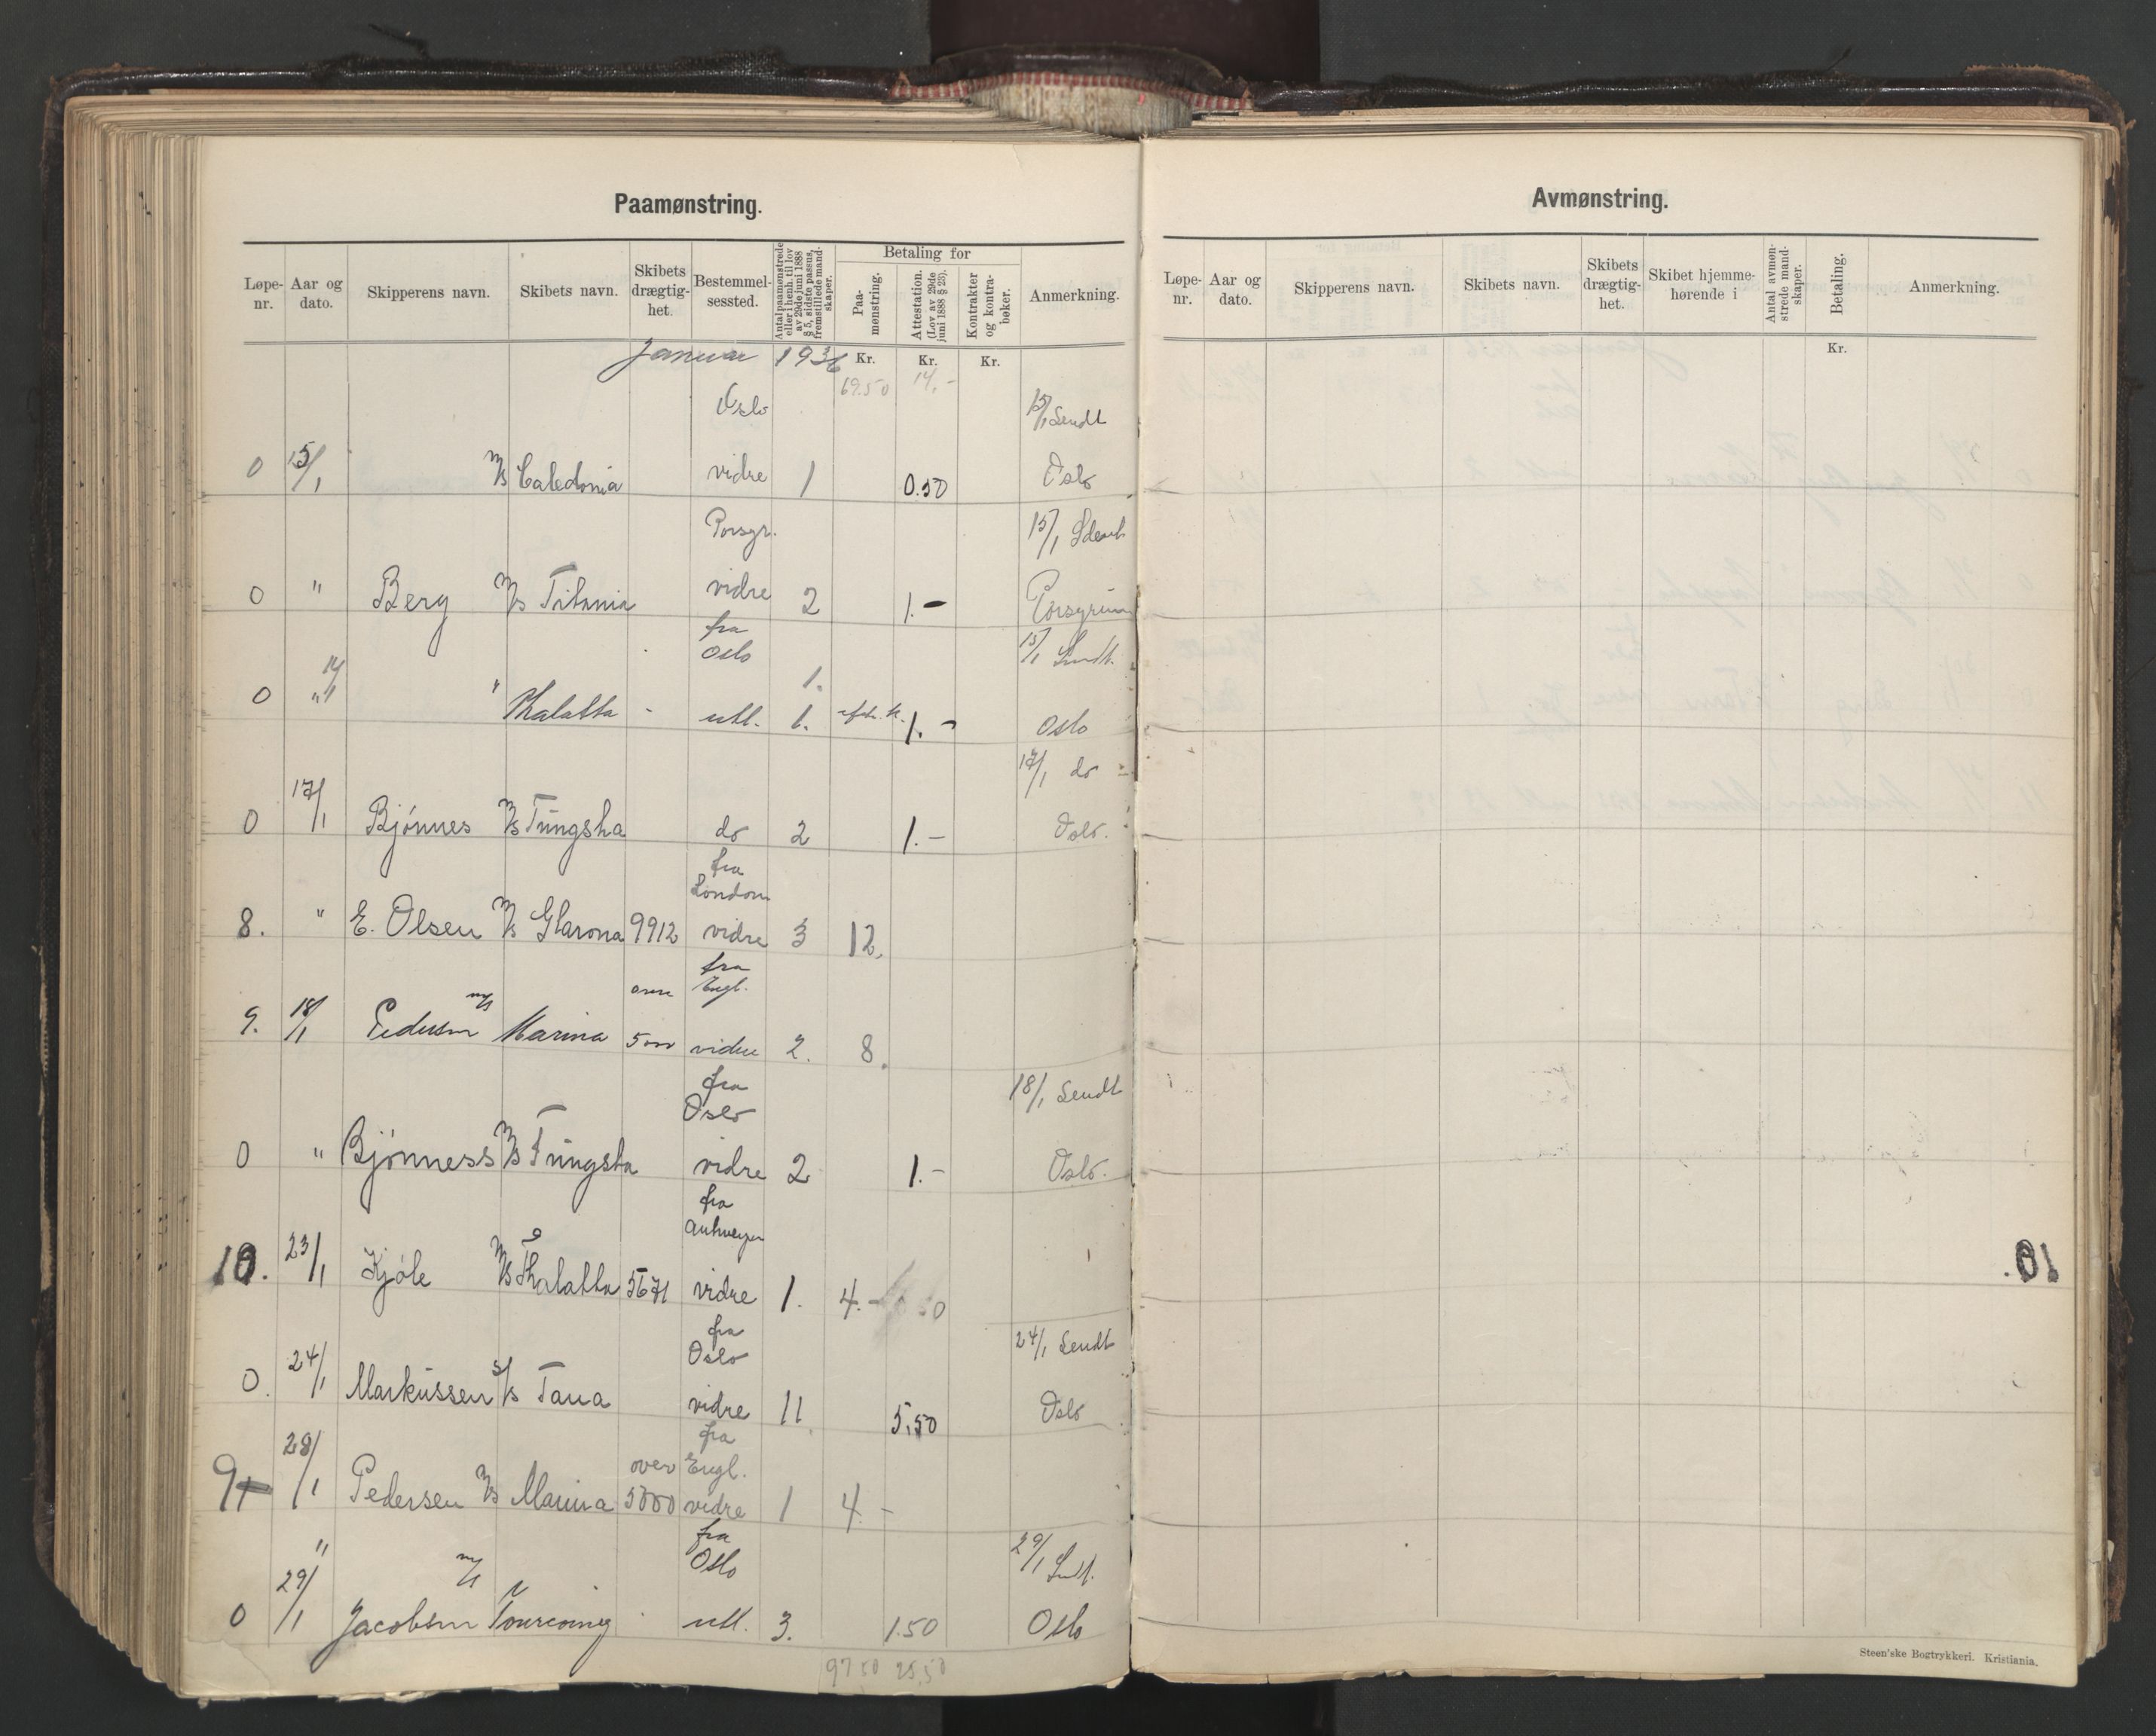 Paamønstring.
Løpe-nr. Aar og dato. Skipperens navn. Skibets navn. Skibets drægtig-het. Bestemmel-sessted. Antal paamønstrede eller i henh. til lov av 29de juni 1888 § 5, sidste passus, fremstillede mand-skaper. Betaling for Paa-mønstring. Attestation. (Lov av 29de juni 1888 § 23). Kontrakter og kontra-bøker. Anmerkning.
Januar 1936 Kr. Kr. Kr.
69.50 14.-
Oslo 15/1 Sendt
0 15/1 M/s Caledonia vidre 1 0.50 Oslo
Porsgr. 15/1 Sendt
0 " Berg M/s Titania vidre 2 1.-
fra Oslo 15/1 Sendt.
14
0 "/1 " Thalatta - utl. 1. 1. 1.- Oslo
17/1 do
0 17/1 Bjönnes M/s Tüngsha do 2 1.- Oslo.
fra London
8. " E. Olsen M/s Glarona 9912 vidre 3 12.
fra Engl.
9. 18/1 Pedersen m/s Marina over 5000 vidre 2. 8.
fra Oslo 18/1 Sendt
0 " Bjönness M/s Tüngsha vidre 2 1.- Oslo.
fra Antwerpen
10. 23/1 Kjöle M/s Thalatta 5671 vidre 1. 4.-
fra Oslo 24/1 Sendt
0. 24/1 Markussen S/s Tana vidre 11 5,50 Oslo
fra Engl.
9 28/1 Pedersen M/s Marina over 5000 vidre 1 4.-
" fra Oslo 29/1 Sendt.
0 29/1 Jacobsen m/s Tourcoing utl. 3. 1.50 Oslo
97.50 25,50
Avmønstring.
Løpe-nr. Aar og dato. Skipperens navn. Skibets navn. Skibets drægtig-het. Skibet hjemme-hørende i Antal avmøn-strede mand-skaper. Betaling. Anmerkning.
Kr.
Steen'ske Bogtrykkeri. Kristiania.